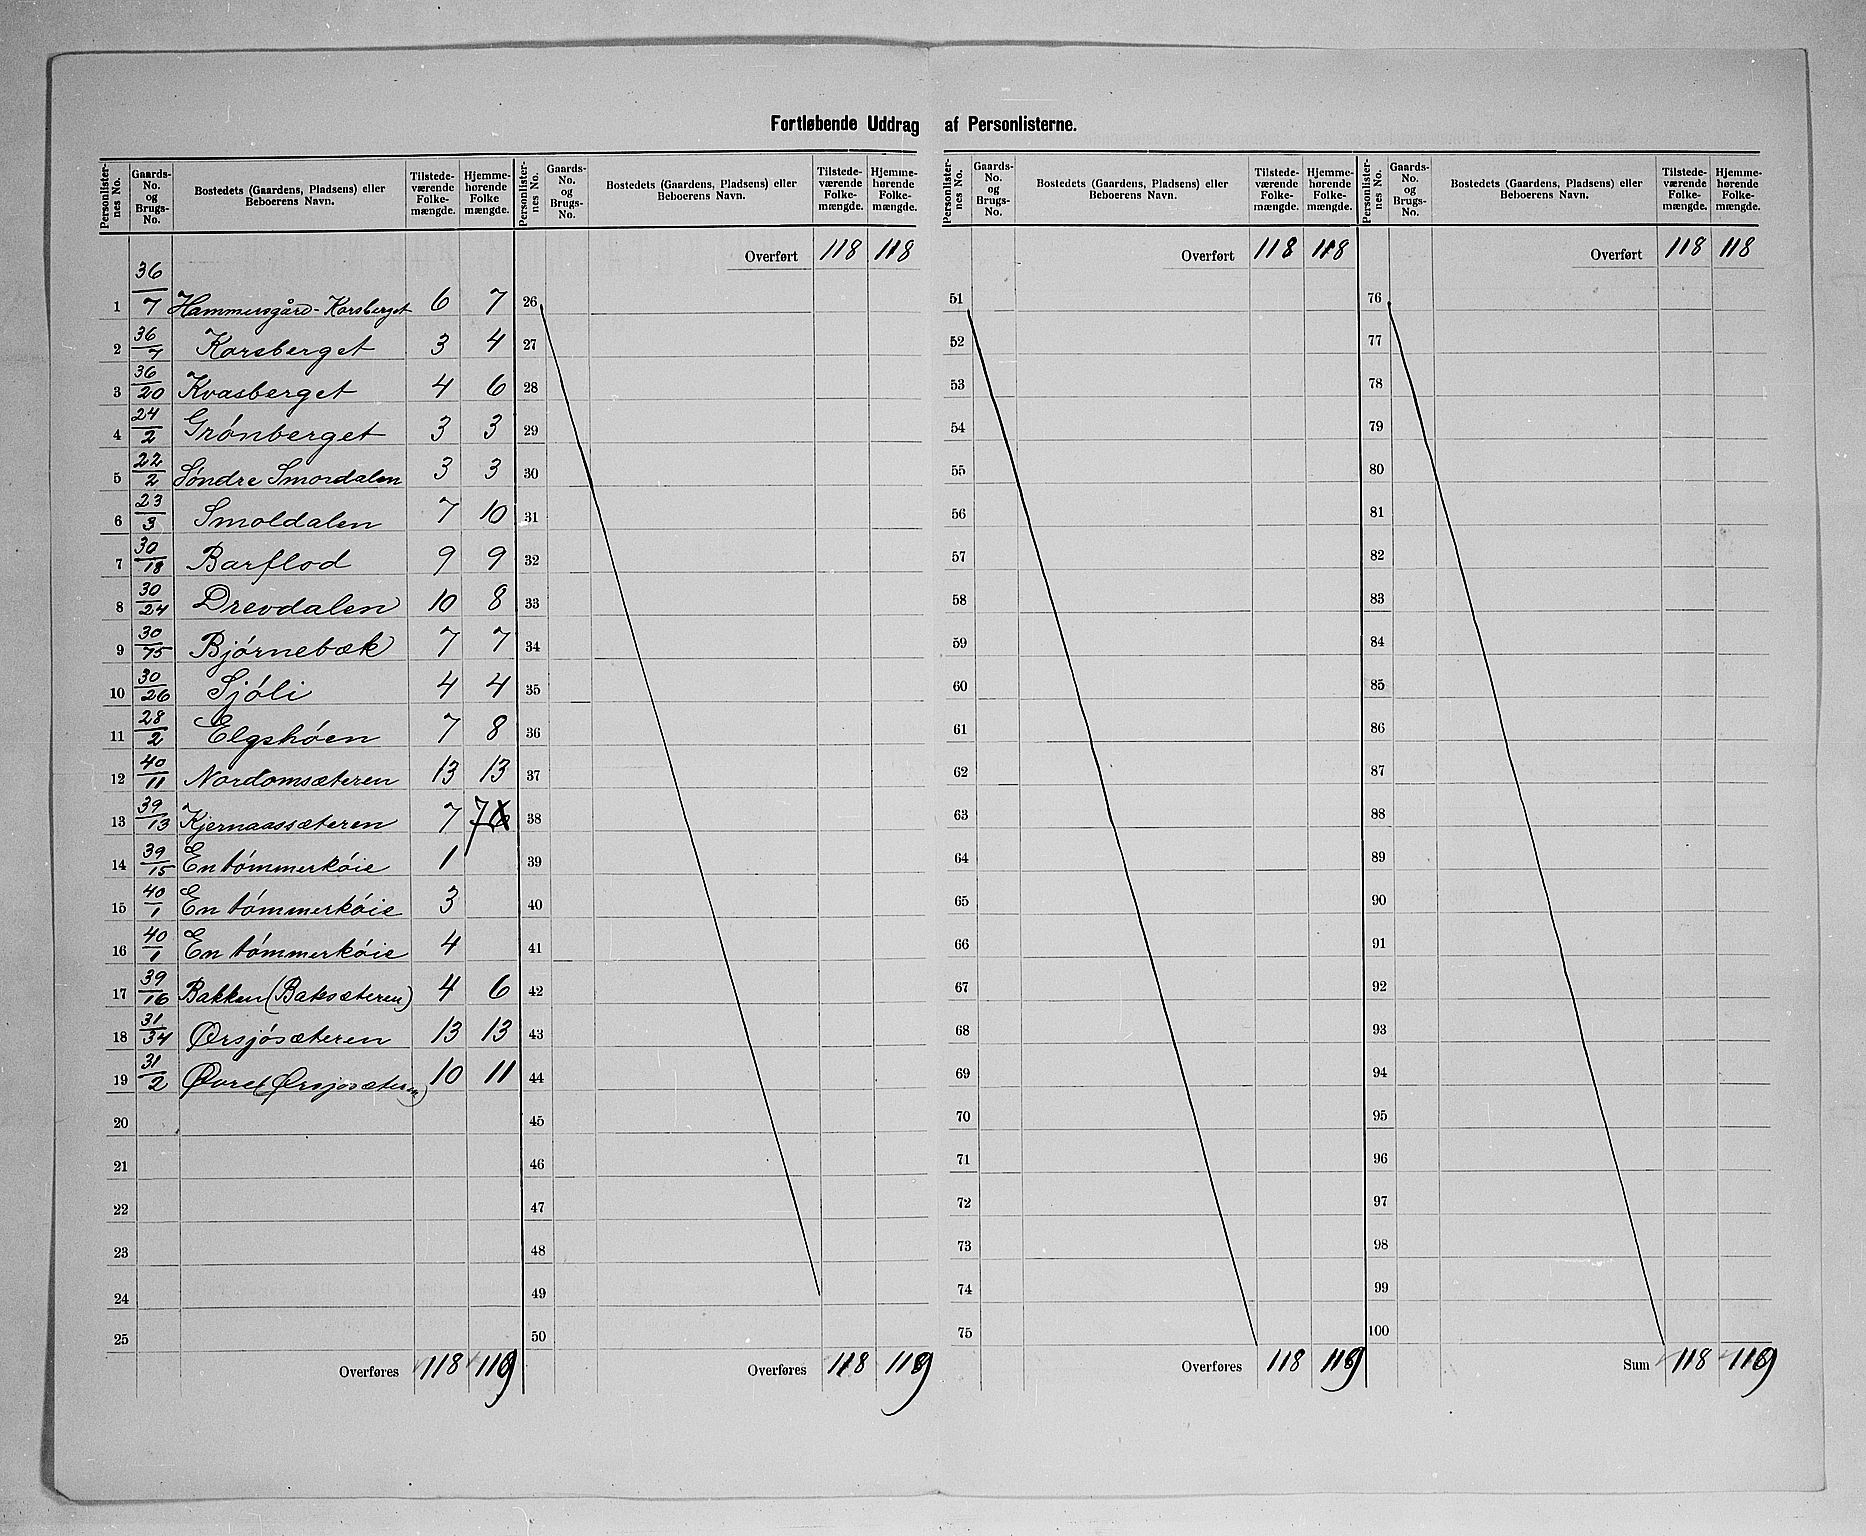 Fortløbende Uddrag af Personlisterne.
Personlister-nes No. | Gaards-No. og Brugs-No. | Bostedets (Gaardens, Pladsens) eller Beboerens Navn. | Tilstede-værende Folke-mængde. | Hjemme-hørende Folke mængde.
1 36/7 Hammersgård-Korsberget 6 7
2 36/7 Korsberget 3 4
3 36/20 Kvasberget 4 6
4 24/2 Grónberget 3 3
5 22/2 Sóndre Smordalen 3 3
6 23/3 Smoldalen 7 10
7 30/18 Barflod 9 9
8 30/24 Drevdalen 10 8
9 30/75 Bjórnebæk 7 7
10 30/26 Sjóli 4 4
11 28/2 Elgshóen 7 8
12 40/11 Nordomsæteren 13 13
13 39/13 Kjernaassæteren 7 7
14 39/15 En tómmerkóie 1
15 40/1 En tómmerkóie 3
16 40/1 En tómmerkóie 4
17 39/16 Bakken (Baksæteren) 4 6
18 31/34 Ørsjósæteren 13 13
19 31/2 Øvre (Ørsjósæteren) 10 11
20
21
22
23
24
25
Overføres 118 119
Personlister-nes No. | Gaards-No. og Brugs-No. | Bostedets (Gaardens, Pladsens) eller Beboerens Navn. | Tilstede-værende Folke-mængde. | Hjemme-hørende Folke-mængde.
Overført 118 118
26
27
28
29
30
31
32
33
34
35
36
37
38
39
40
41
42
43
44
45
46
47
48
49
50
Overføres 118 119
Personlister-nes No. | Gaards-No. og Brugs-No. | Bostedets (Gaardens, Pladsens) eller Beboerens Navn. | Tilstede-værende Folke-mængde. | Hjemme-hørende Folke-mængde.
Overført 118 118
51
52
53
54
55
56
57
58
59
60
61
62
63
64
65
66
67
68
69
70
71
72
73
74
75
Overføres 118 119
Personlister-nes No. | Gaards-No. og Brugs-No. | Bostedets (Gaardens, Pladsens) eller Beboerens Navn. | Tilstede-værende Folke-mængde. | Hjemme-hørende Folke-mængde.
Overført 118 118
76
77
78
79
80
81
82
83
84
85
86
87
88
89
90
91
92
93
94
95
96
97
98
99
100
Sum 118 119